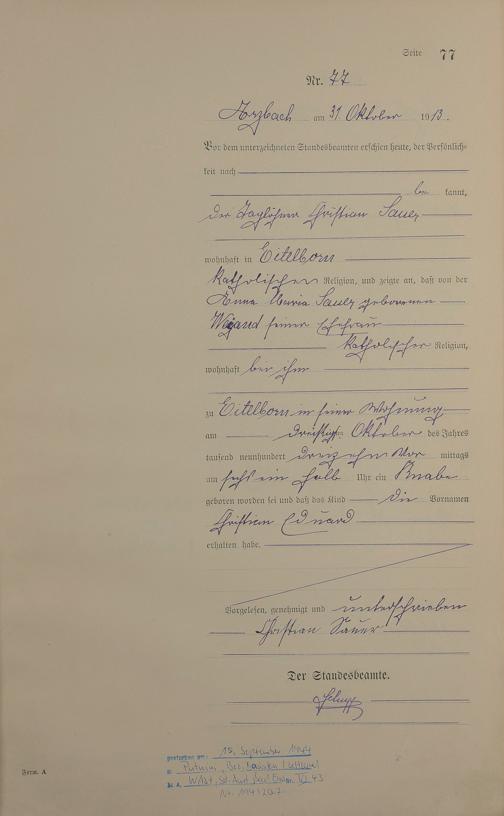 Seite 77
Nr. 77
Arzbach am 31 Oktober 1913.
Vor dem unterzeichneten Standesbeamten erschien heute, der Persönlich-
keit nach
be kannt,
der Taglöhner Christian Sauer
wohnhaft in Eitelborn
katholischen Religion, und zeigte an, daß von der
Anna Maria Sauer geborenen
Wigand seiner Ehefrau
katholischer Religion,
wohnhaft bei ihm
zu Eitelborn in seiner Wohnung
am dreißigsten Oktober des Jahres
tausend neunhundert dreizehn Vor mittags
um sechs ein halb Uhr ein Knabe
geboren worden sei und daß das Kind die Vornamen
Christian Eduard
erhalten habe.
Vorgelesen, genehmigt und unterschrieben
Christian Sauer
Der Standesbeamte.
gestorben am: 15. September 1944
in
St. A.
Form. A